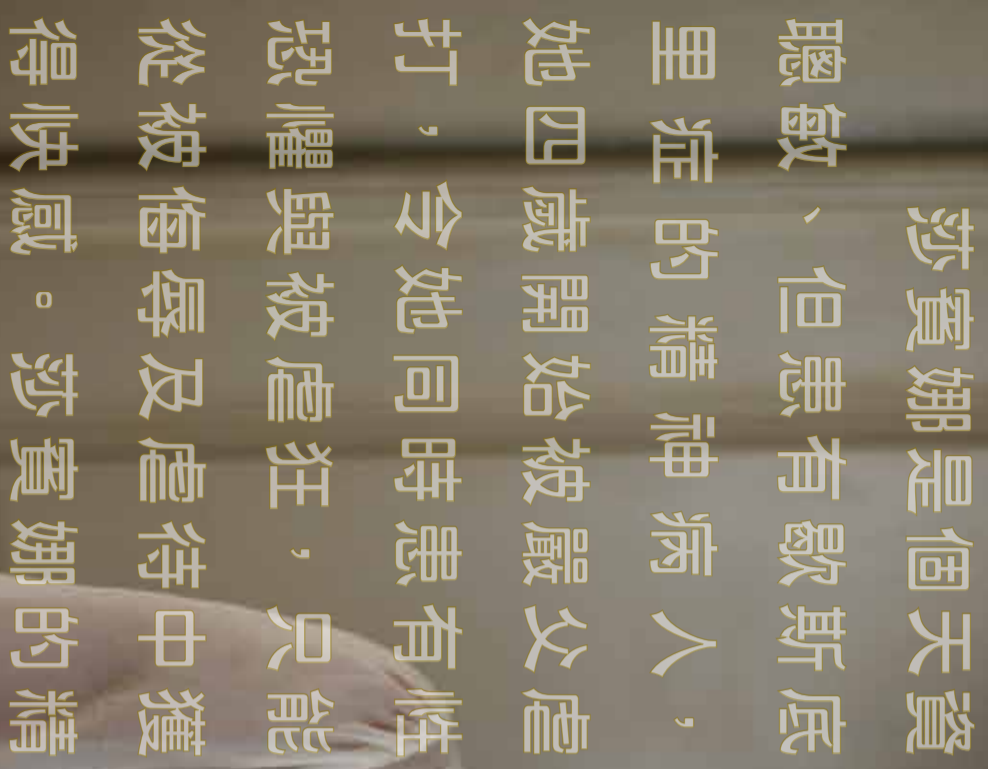 莎賓娜是個天資
聰敏、但患有歇斯底
里症的精神病人，
她四歲開始被嚴父虐
打，令她同時患有性
恐懼與被虐狂，只能
從被侮辱及虐待中獲
得快感。莎賓娜的精